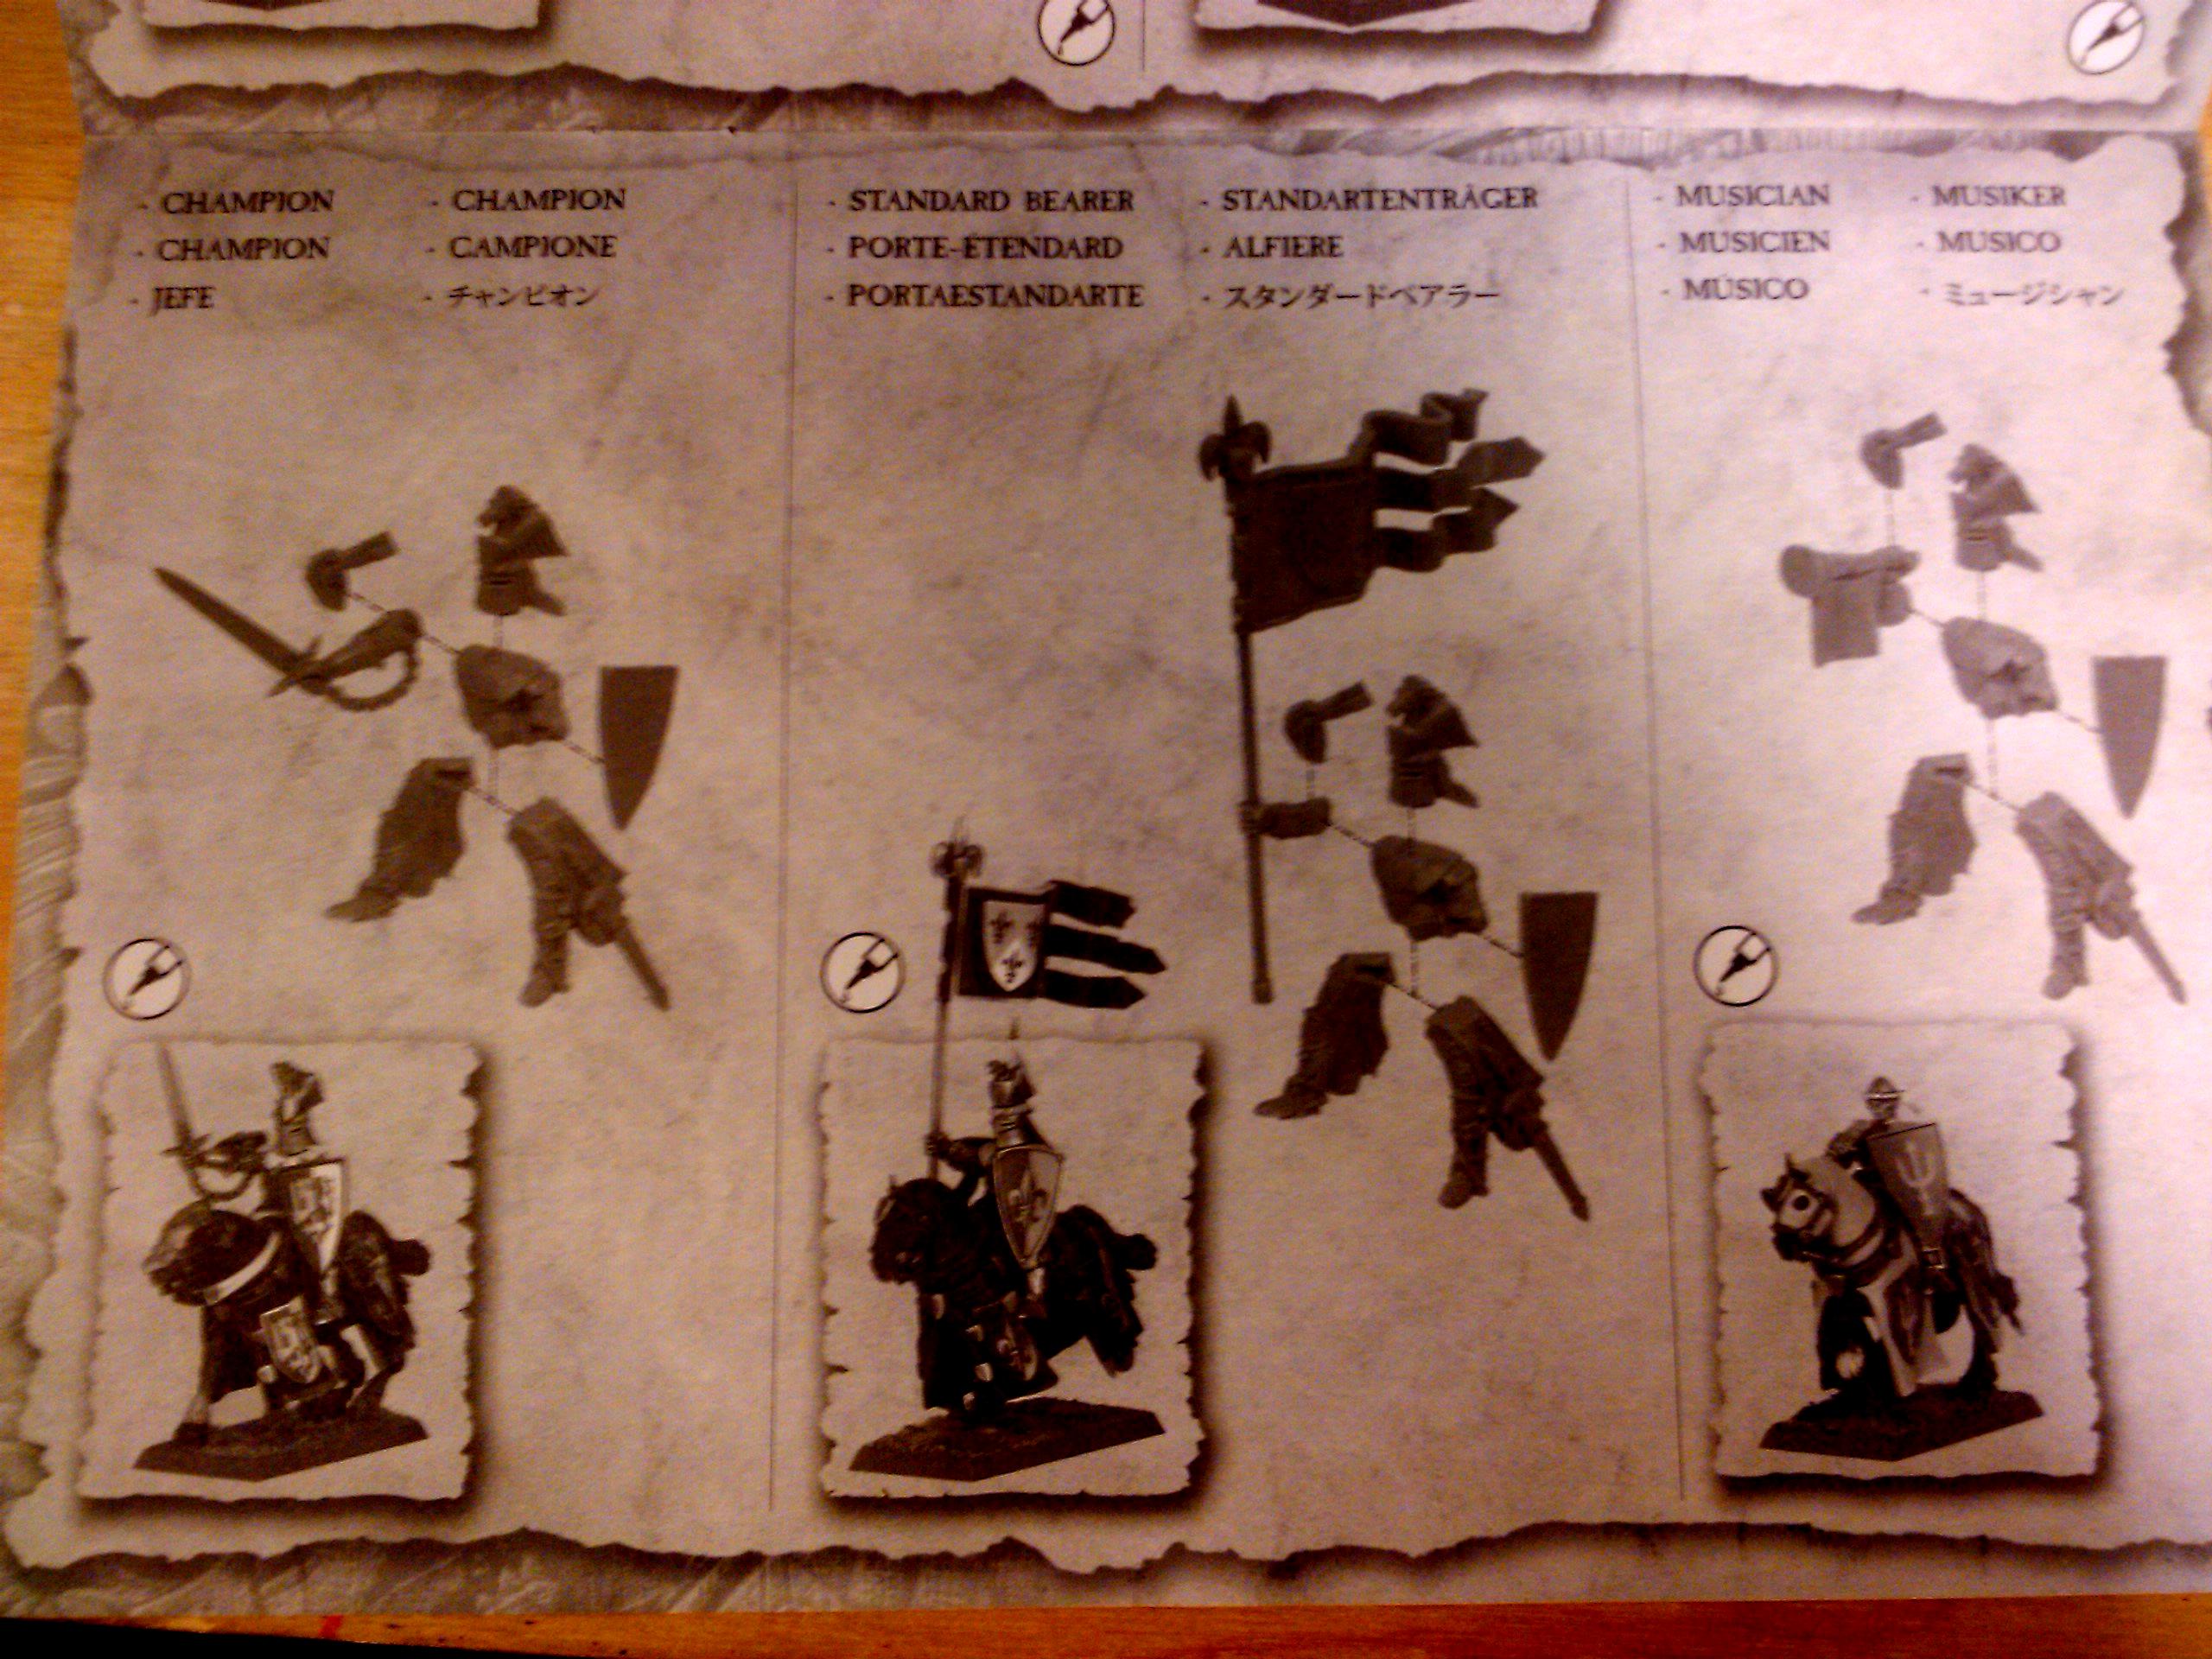 - CHAMPION
- CHAMPION
- JEFE
- CHAMPION
- CAMPIONE
- チャンピオン
- STANDARD BEARER
- PORTE-ÉTENDARD
- PORTAESTANDARTE
- STANDARTENTRÄGER
- ALFIERE
- スタンダードベアラー
- MUSICIAN
- MUSICIEN
- MÚSICO
- MUSIKER
- MUSICO
- ミュージシャン